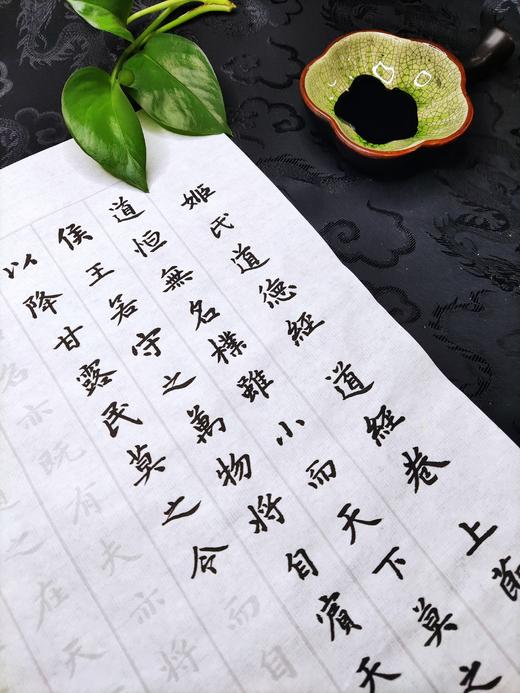 姬氏道德經 道經卷上 節
道恒無名樸雖小而天下莫之
侯王若守之萬物將自賓天
以降甘露民莫之令而自
名亦既有夫亦將
之在天